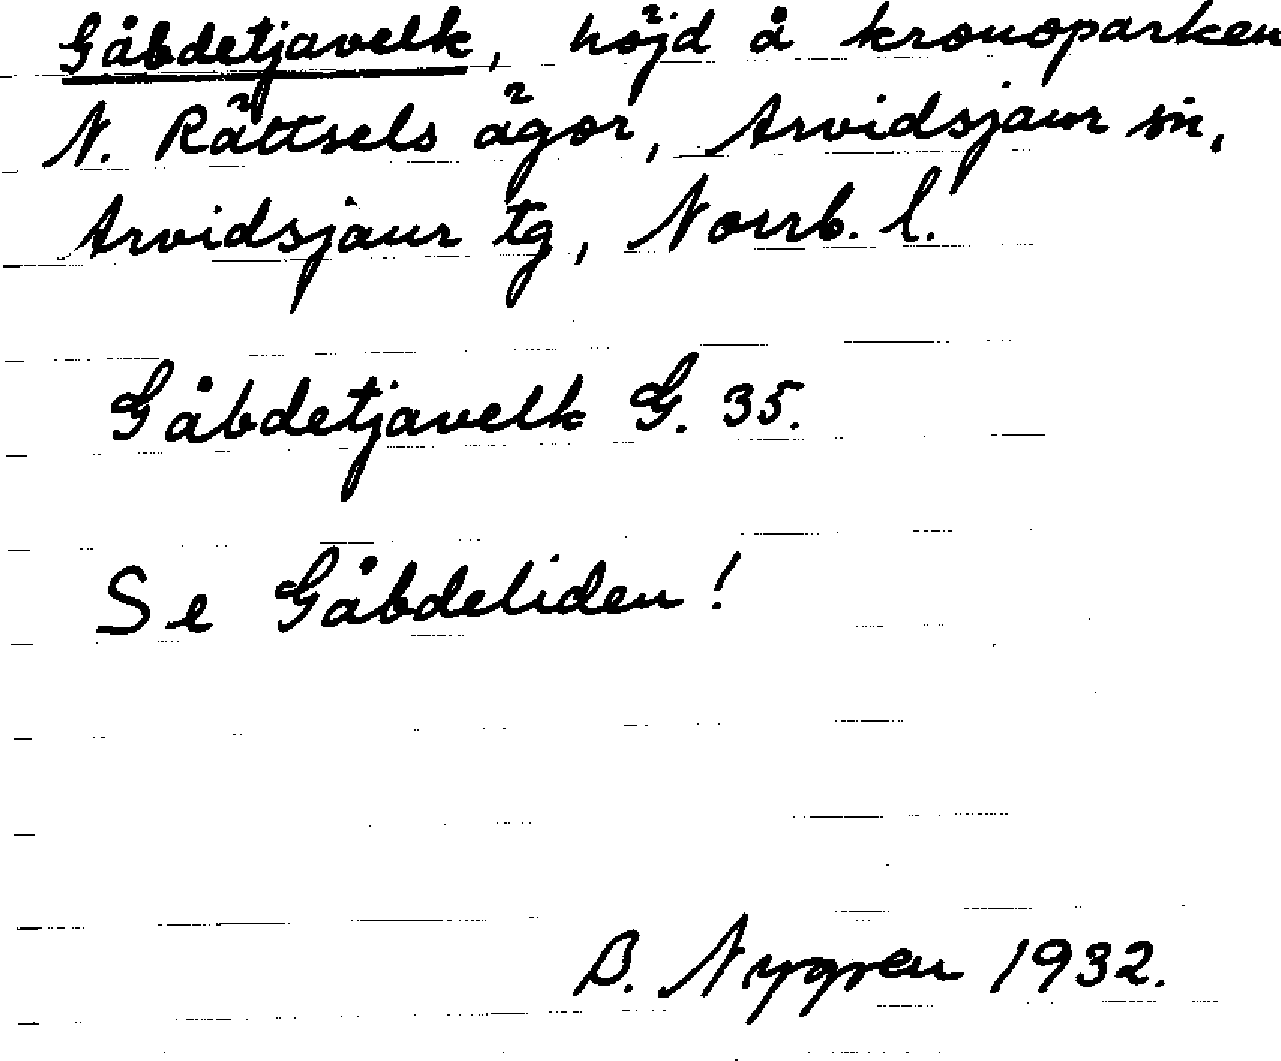 Gåbdetjavelk, höjd å kronoparken
N. Rättsels ägor, Arvidsjaur sn,
Arvidsjaur tg, Norrb. l.
Gåbdetjavelk G. 35.
Se Gåbdeliden!
B. Nygren 1932.